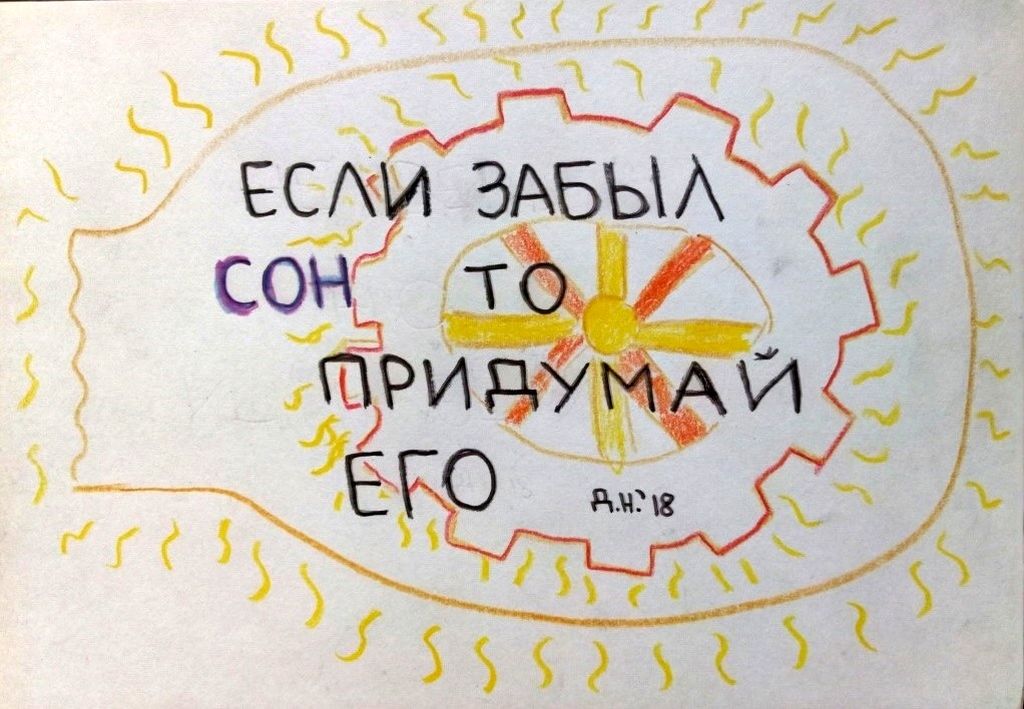 ЕСЛИ ЗАБЫЛ
СОН ТО
ПРИДУМАЙ
ЕГО
Д.Н.'18